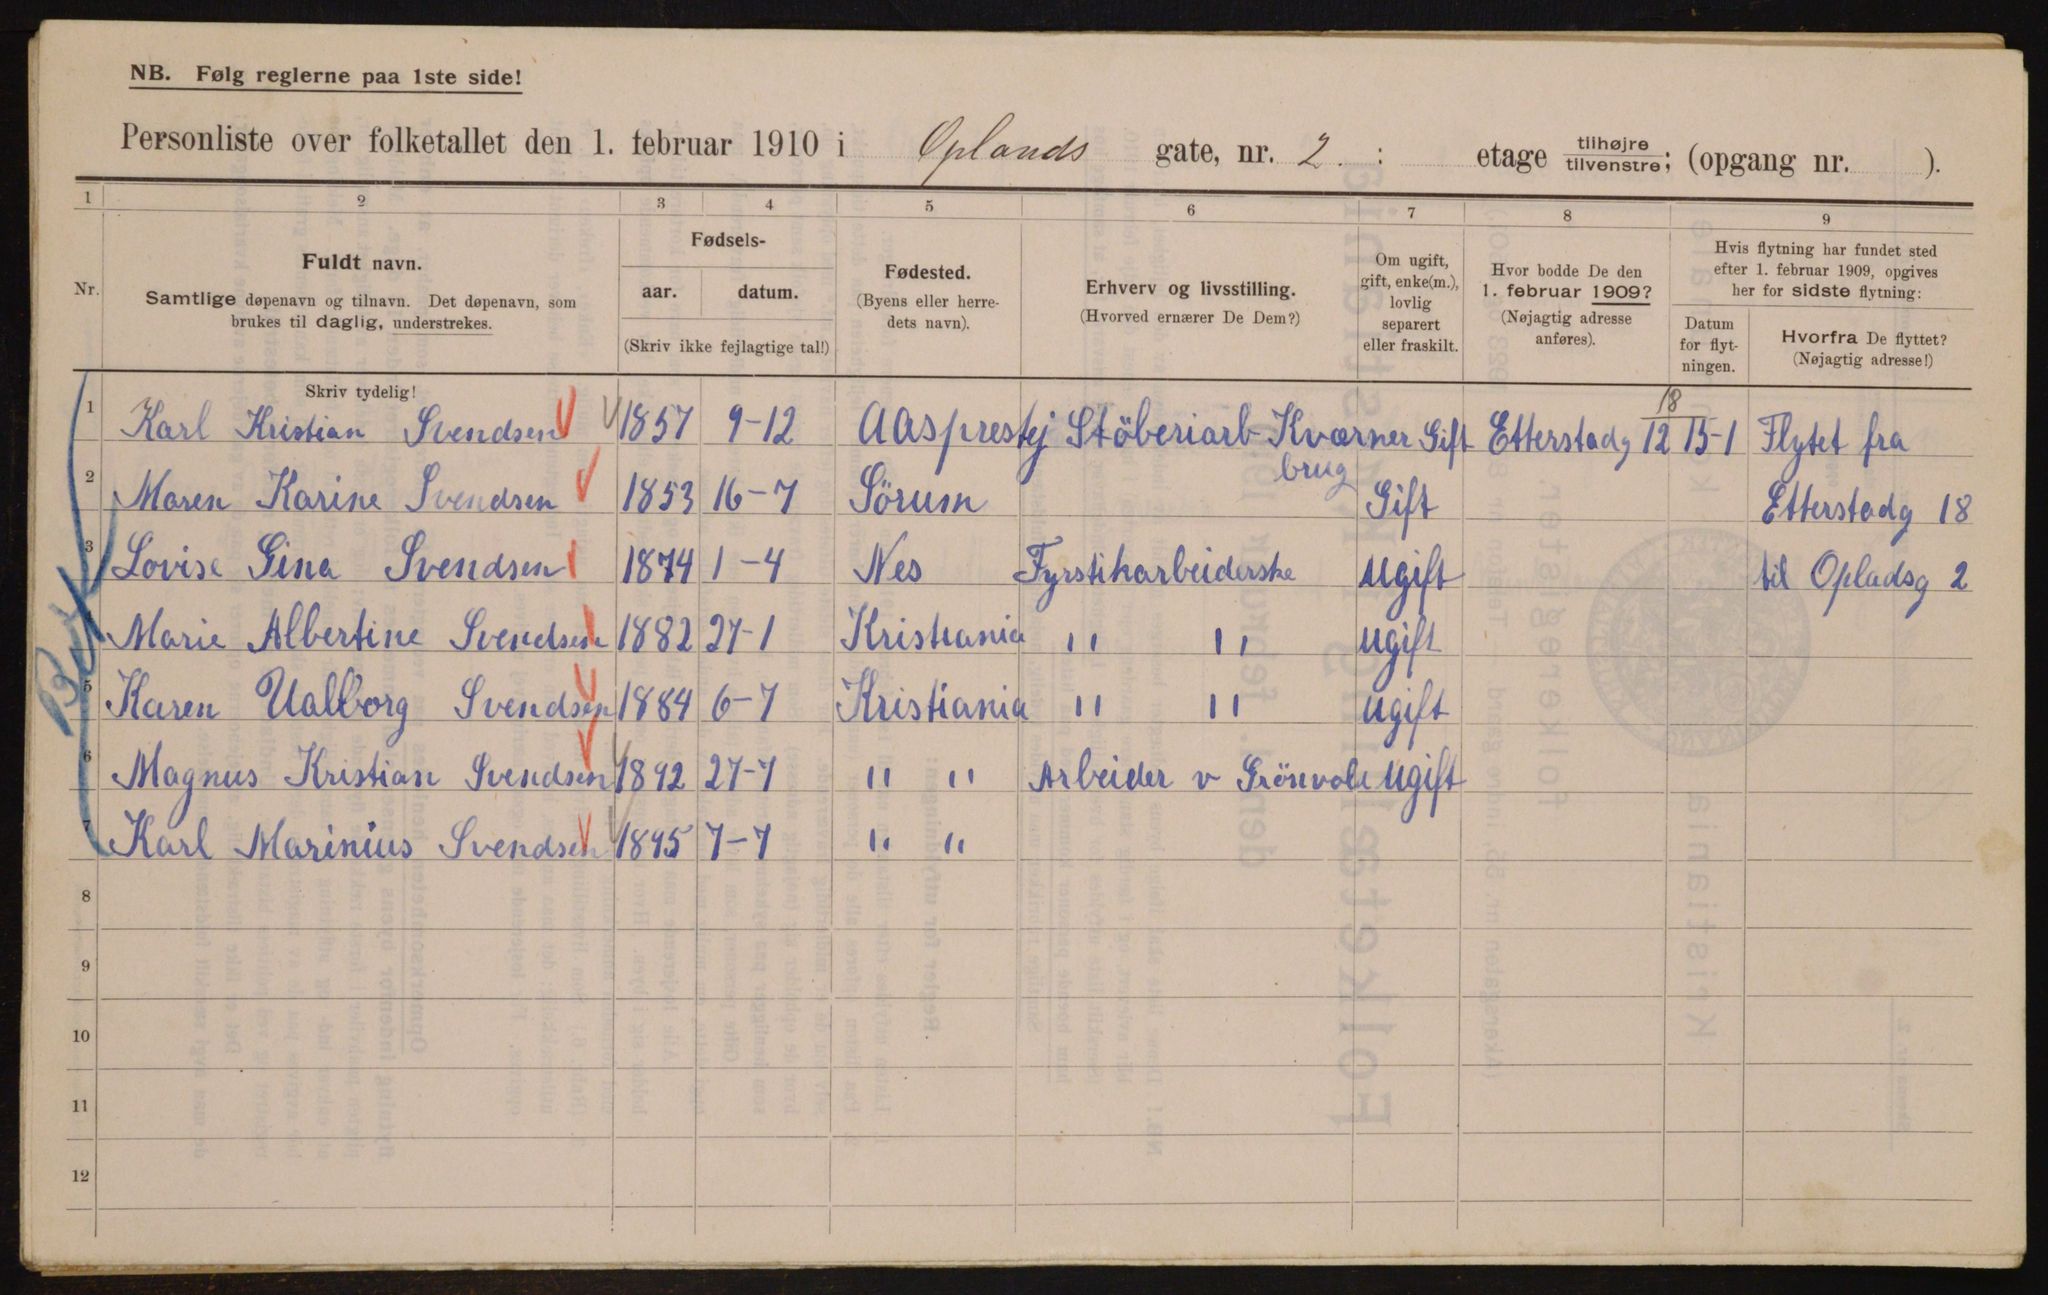 NB. Følg reglerne paa 1ste side!
Personliste over folketallet den 1. februar 1910 i Oplands gate, nr. 2. : etage tilhøjre tilvenstre; (opgang nr. ).
1 2 3 4 5 6 7 8 9
Nr.
Fuldt navn.
Samtlige døpenavn og tilnavn. Det døpenavn, som
brukes til daglig, understrekes.
Fødsels-
aar. datum.
(Skriv ikke fejlagtige tal!)
Fødested.
(Byens eller herre-
dets navn).
Erhverv og livsstilling.
(Hvorved ernærer De Dem?)
Om ugift,
gift, enke(m.),
lovlig
separert
eller fraskilt.
Hvor bodde De den
1. februar 1909?
(Nøjagtig adresse
anføres).
Hvis flytning har fundet sted
efter 1. februar 1909, opgives
her for sidste flytning:
Datum
for flyt-
ningen.
Hvorfra De flyttet?
(Nøjagtig adresse!)
Skriv tydelig!
18
1 Karl Kristian Svendsen 1857 9-12 Aasprestej Stöberiarb Kværner Gift Etterstadg 12 15-1 Flytet fra
brug
2 Maren Karine Svendsen 1853 16-7 Sörum Gift Etterstadg 18
3 Lovise Gina Svendsen 1874 1-4 Nes Fyrstikarbeiderske ugift til Opladsg 2
4 Marie Albertine Svendsen 1882 27-1 Kristiania " " ugift
5 Karen Valborg Svendsen 1884 6-7 Kristiania " " ugift
6 Magnus Kristian Svendsen 1892 27-7 " " Arbeider v Grönvole ugift
7 Karl Marinius Svendsen 1895 7-7 " "
8
9
10
11
12